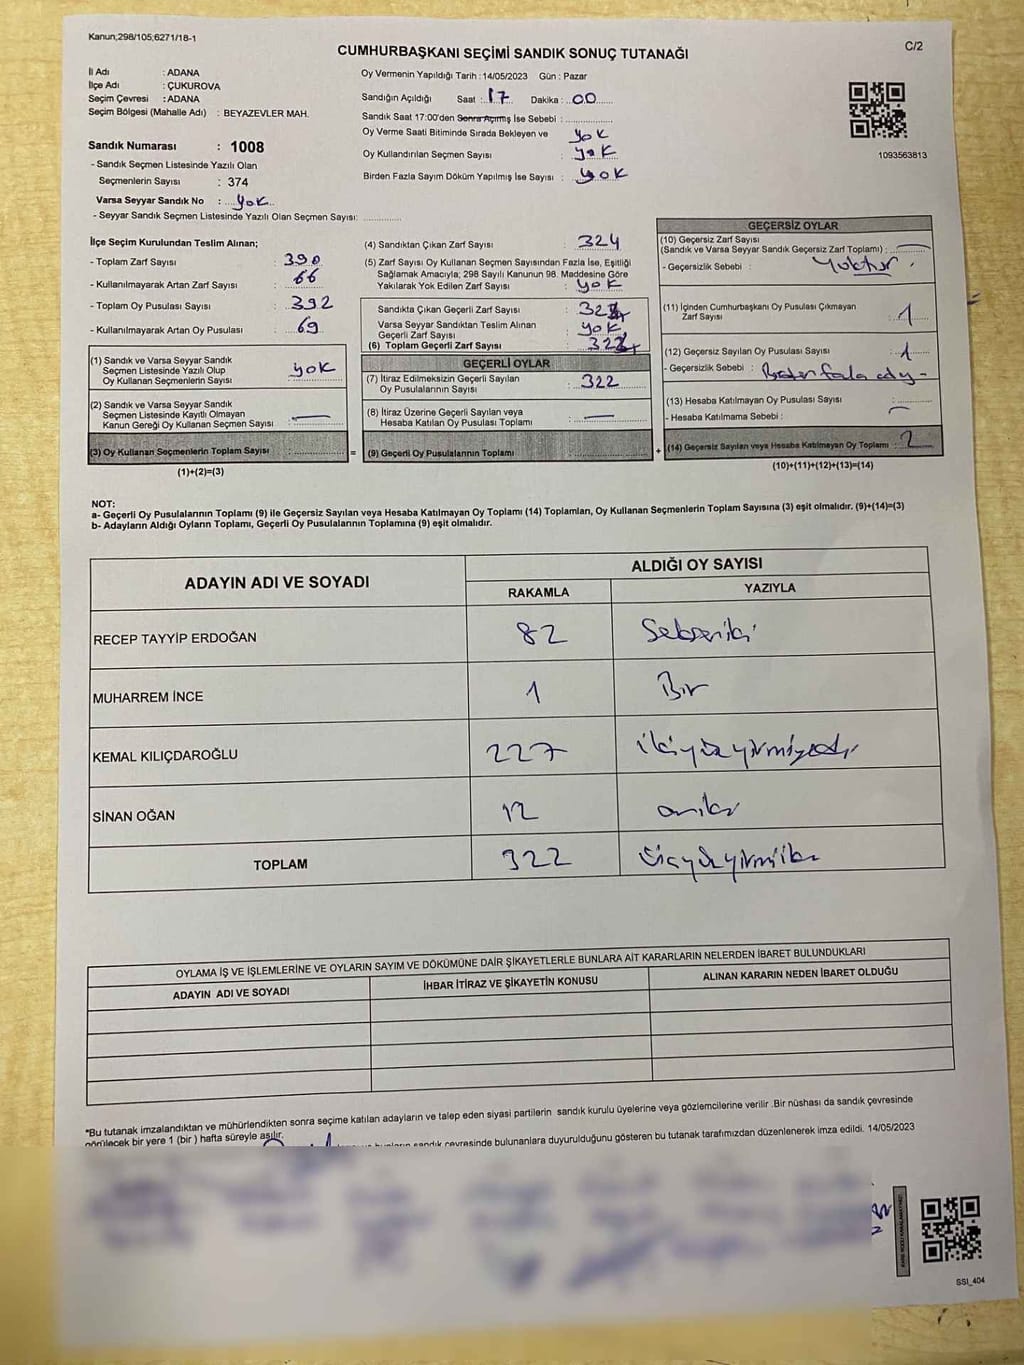 Kanun;298/105;6271/18-1
C/2
CUMHURBAŞKANI SEÇİMİ SANDIK SONUÇ TUTANAĞI
İl Adı : ADANA
İlçe Adı : ÇUKUROVA
Seçim Çevresi : ADANA
Seçim Bölgesi (Mahalle Adı) : BEYAZEVLER MAH.
Sandık Numarası : 1008
- Sandık Seçmen Listesinde Yazılı Olan
Seçmenlerin Sayısı : 374
Varsa Seyyar Sandık No : yok
- Seyyar Sandık Seçmen Listesinde Yazılı Olan Seçmen Sayısı:
Oy Vermenin Yapıldığı Tarih : 14/05/2023 Gün : Pazar
Sandığın Açıldığı Saat : 17 Dakika : 00
Sandık Saat 17:00'den Sonra Açılmış İse Sebebi :
Oy Verme Saati Bitiminde Sırada Bekleyen ve yok
Oy Kullandırılan Seçmen Sayısı : yok
Birden Fazla Sayım Döküm Yapılmış İse Sayısı : yok
1093563813
İlçe Seçim Kurulundan Teslim Alınan;
- Toplam Zarf Sayısı : 390
- Kullanılmayarak Artan Zarf Sayısı : 66
- Toplam Oy Pusulası Sayısı : 392
- Kullanılmayarak Artan Oy Pusulası : 69
(1) Sandık ve Varsa Seyyar Sandık
Seçmen Listesinde Yazılı Olup
Oy Kullanan Seçmenlerin Sayısı yok
(2) Sandık ve Varsa Seyyar Sandık
Seçmen Listesinde Kayıtlı Olmayan
Kanun Gereği Oy Kullanan Seçmen Sayısı
(3) Oy Kullanan Seçmenlerin Toplam Sayısı :
(1)+(2)=(3)
(4) Sandıktan Çıkan Zarf Sayısı : 324
(5) Zarf Sayısı Oy Kullanan Seçmen Sayısından Fazla İse, Eşitliği
Sağlamak Amacıyla; 298 Sayılı Kanunun 98. Maddesine Göre
Yakılarak Yok Edilen Zarf Sayısı : yok
Sandıkta Çıkan Geçerli Zarf Sayısı :
Varsa Seyyar Sandıktan Teslim Alınan
Geçerli Zarf Sayısı : yok
(6) Toplam Geçerli Zarf Sayısı :
GEÇERLİ OYLAR
(7) İtiraz Edilmeksizin Geçerli Sayılan
Oy Pusulasının Sayısı : 322
(8) İtiraz Üzerine Geçerli Sayılan veya
Hesaba Katılan Oy Pusulası Toplamı :
(9) Geçerli Oy Pusulalarının Toplamı
GEÇERSİZ OYLAR
(10) Geçersiz Zarf Sayısı
(Sandık ve Varsa Seyyar Sandık Geçersiz Zarf Toplamı) :
- Geçersizlik Sebebi : Yoktur.
(11) İçinden Cumhurbaşkanı Oy Pusulası Çıkmayan
Zarf Sayısı : 1
(12) Geçersiz Sayılan Oy Pusulası Sayısı : 1
- Geçersizlik Sebebi :
(13) Hesaba Katılmayan Oy Pusulası Sayısı :
- Hesaba Katılmama Sebebi :
(14) Geçersiz Sayılan veya Hesaba Katılmayan Oy Toplamı : 2
(10)+(11)+(12)+(13)=(14)
NOT:
a- Geçerli Oy Pusulalarının Toplamı (9) ile Geçersiz Sayılan veya Hesaba Katılmayan Oy Toplamı (14) Toplamları, Oy Kullanan Seçmenlerin Toplam Sayısına (3) eşit olmalıdır. (9)+(14)=(3)
b- Adayların Aldığı Oyların Toplamı, Geçerli Oy Pusulalarının Toplamına (9) eşit olmalıdır.
ADAYIN ADI VE SOYADI
ALDIĞI OY SAYISI
RAKAMLA YAZIYLA
RECEP TAYYİP ERDOĞAN 82 Sekseniki
MUHARREM İNCE 1 Bir
KEMAL KILIÇDAROĞLU 227 ikiyüzyirmiyedi
SİNAN OĞAN 12 oniki
TOPLAM 322 üçyüzyirmiiki
OYLAMA İŞ VE İŞLEMLERİNE VE OYLARIN SAYIM VE DÖKÜMÜNE DAİR ŞİKAYETLERLE BUNLARA AİT KARARLARIN NELERDEN İBARET BULUNDUKLARI
ADAYIN ADI VE SOYADI İHBAR İTİRAZ VE ŞİKAYETİN KONUSU ALINAN KARARIN NEDEN İBARET OLDUĞU
*Bu tutanak imzalandıktan ve mühürlendikten sonra seçime katılan adayların ve talep eden siyasi partilerin sandık kurulu üyelerine veya gözlemcilerine verilir .Bir nüshası da sandık çevresinde
görülecek bir yere 1 (bir ) hafta süreyle asılır.
bunların sandık çevresinde bulunanlara duyurulduğunu gösteren bu tutanak tarafımızdan düzenlenerek imza edildi. 14/05/2023
SSI_404